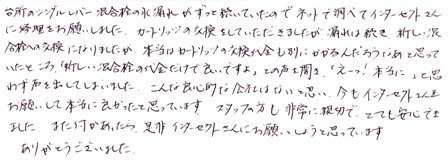 台所のシングルレバー混合栓の水漏れがずっと続いていたのでネットで調べてインターセプトさん
に修理をお願いしました。カートリッジの交換をしていただきましたが漏れは続き、新しい混
合栓への交換になりましたが、本当はカートリッジの交換代金も別にかかるんだろうなあと思って
いたところ「新しい混合栓の代金だけで良いですよ」との声を聞き、「えーっ!本当に」と思
わず声を出してしまいました。こんな良心的な会社はないと思い、今もインターセプトさんを
お願いして本当に良かったと思っています。スタッフの方も非常に親切で、とても安心でき
ました。また何かあったら、是非インターセプトさんにお願いしようと思っています
ありがとうございました。